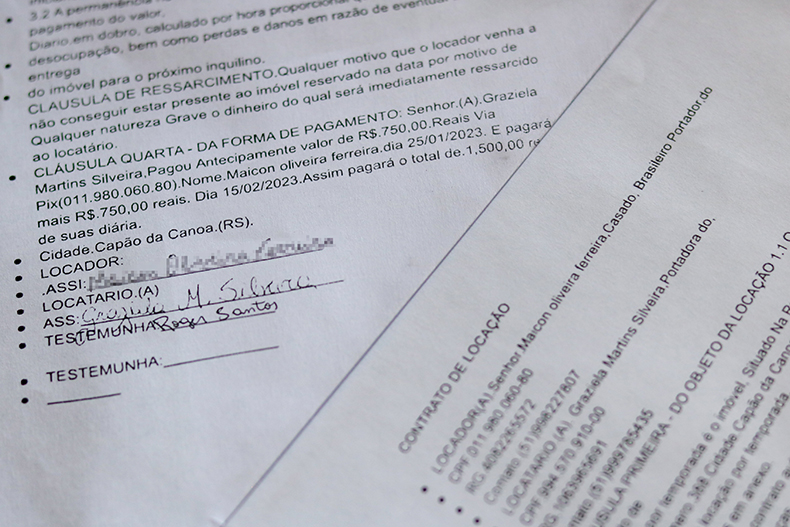 3.2 A permanência
pagamento do valor.
Diario.em dobro, calculado por hora proporcional
desocupação, bem como perdas e danos em razão de eventual
entrega
do imóvel para o próximo inquilino.
CLAUSULA DE RESSARCIMENTO.Qualquer motivo que o locador venha a
não conseguir estar presente ao imóvel reservado na data por motivo de
Qualquer natureza Grave o dinheiro do qual será imediatamente ressarcido
ao locatário.
CLÁUSULA QUARTA - DA FORMA DE PAGAMENTO: Senhor.(A).Graziela
Martins Silveira,Pagou Antecipamente valor de R$.750,00.Reais Via
Pix(011.980.060.80).Nome.Maicon oliveira ferreira.dia 25/01/2023. E pagará
mais R$.750,00 reais. Dia 15/02/2023.Assim pagará o total de.1,500,00 re
de suas diária.
Cidade.Capão da Canoa.(RS).
LOCADOR:
.ASSI:
LOCATARIO.(A)
ASS: Graziela M. Silveira
TESTEMUNHA: Roger Santos
TESTEMUNHA:
CONTRATO DE LOCAÇÃO
LOCADOR(A).Senhor.Maicon oliveira ferreira,Casado. Brasileiro Portador.do
CPF 011.980.060-80
RG.4082265572
Contato (51)998227807
LOCATARIO (A) Graziela Martins Silveira,Portadora do.
CPF 994 570 910-00
(51)999785435
PRIMEIRA - DO OBJETO DA LOCAÇÃO 1.1
por temporada é o imóvel, Situado Na
Cidade Capão da Canoa
locação por temporada
em anexo.